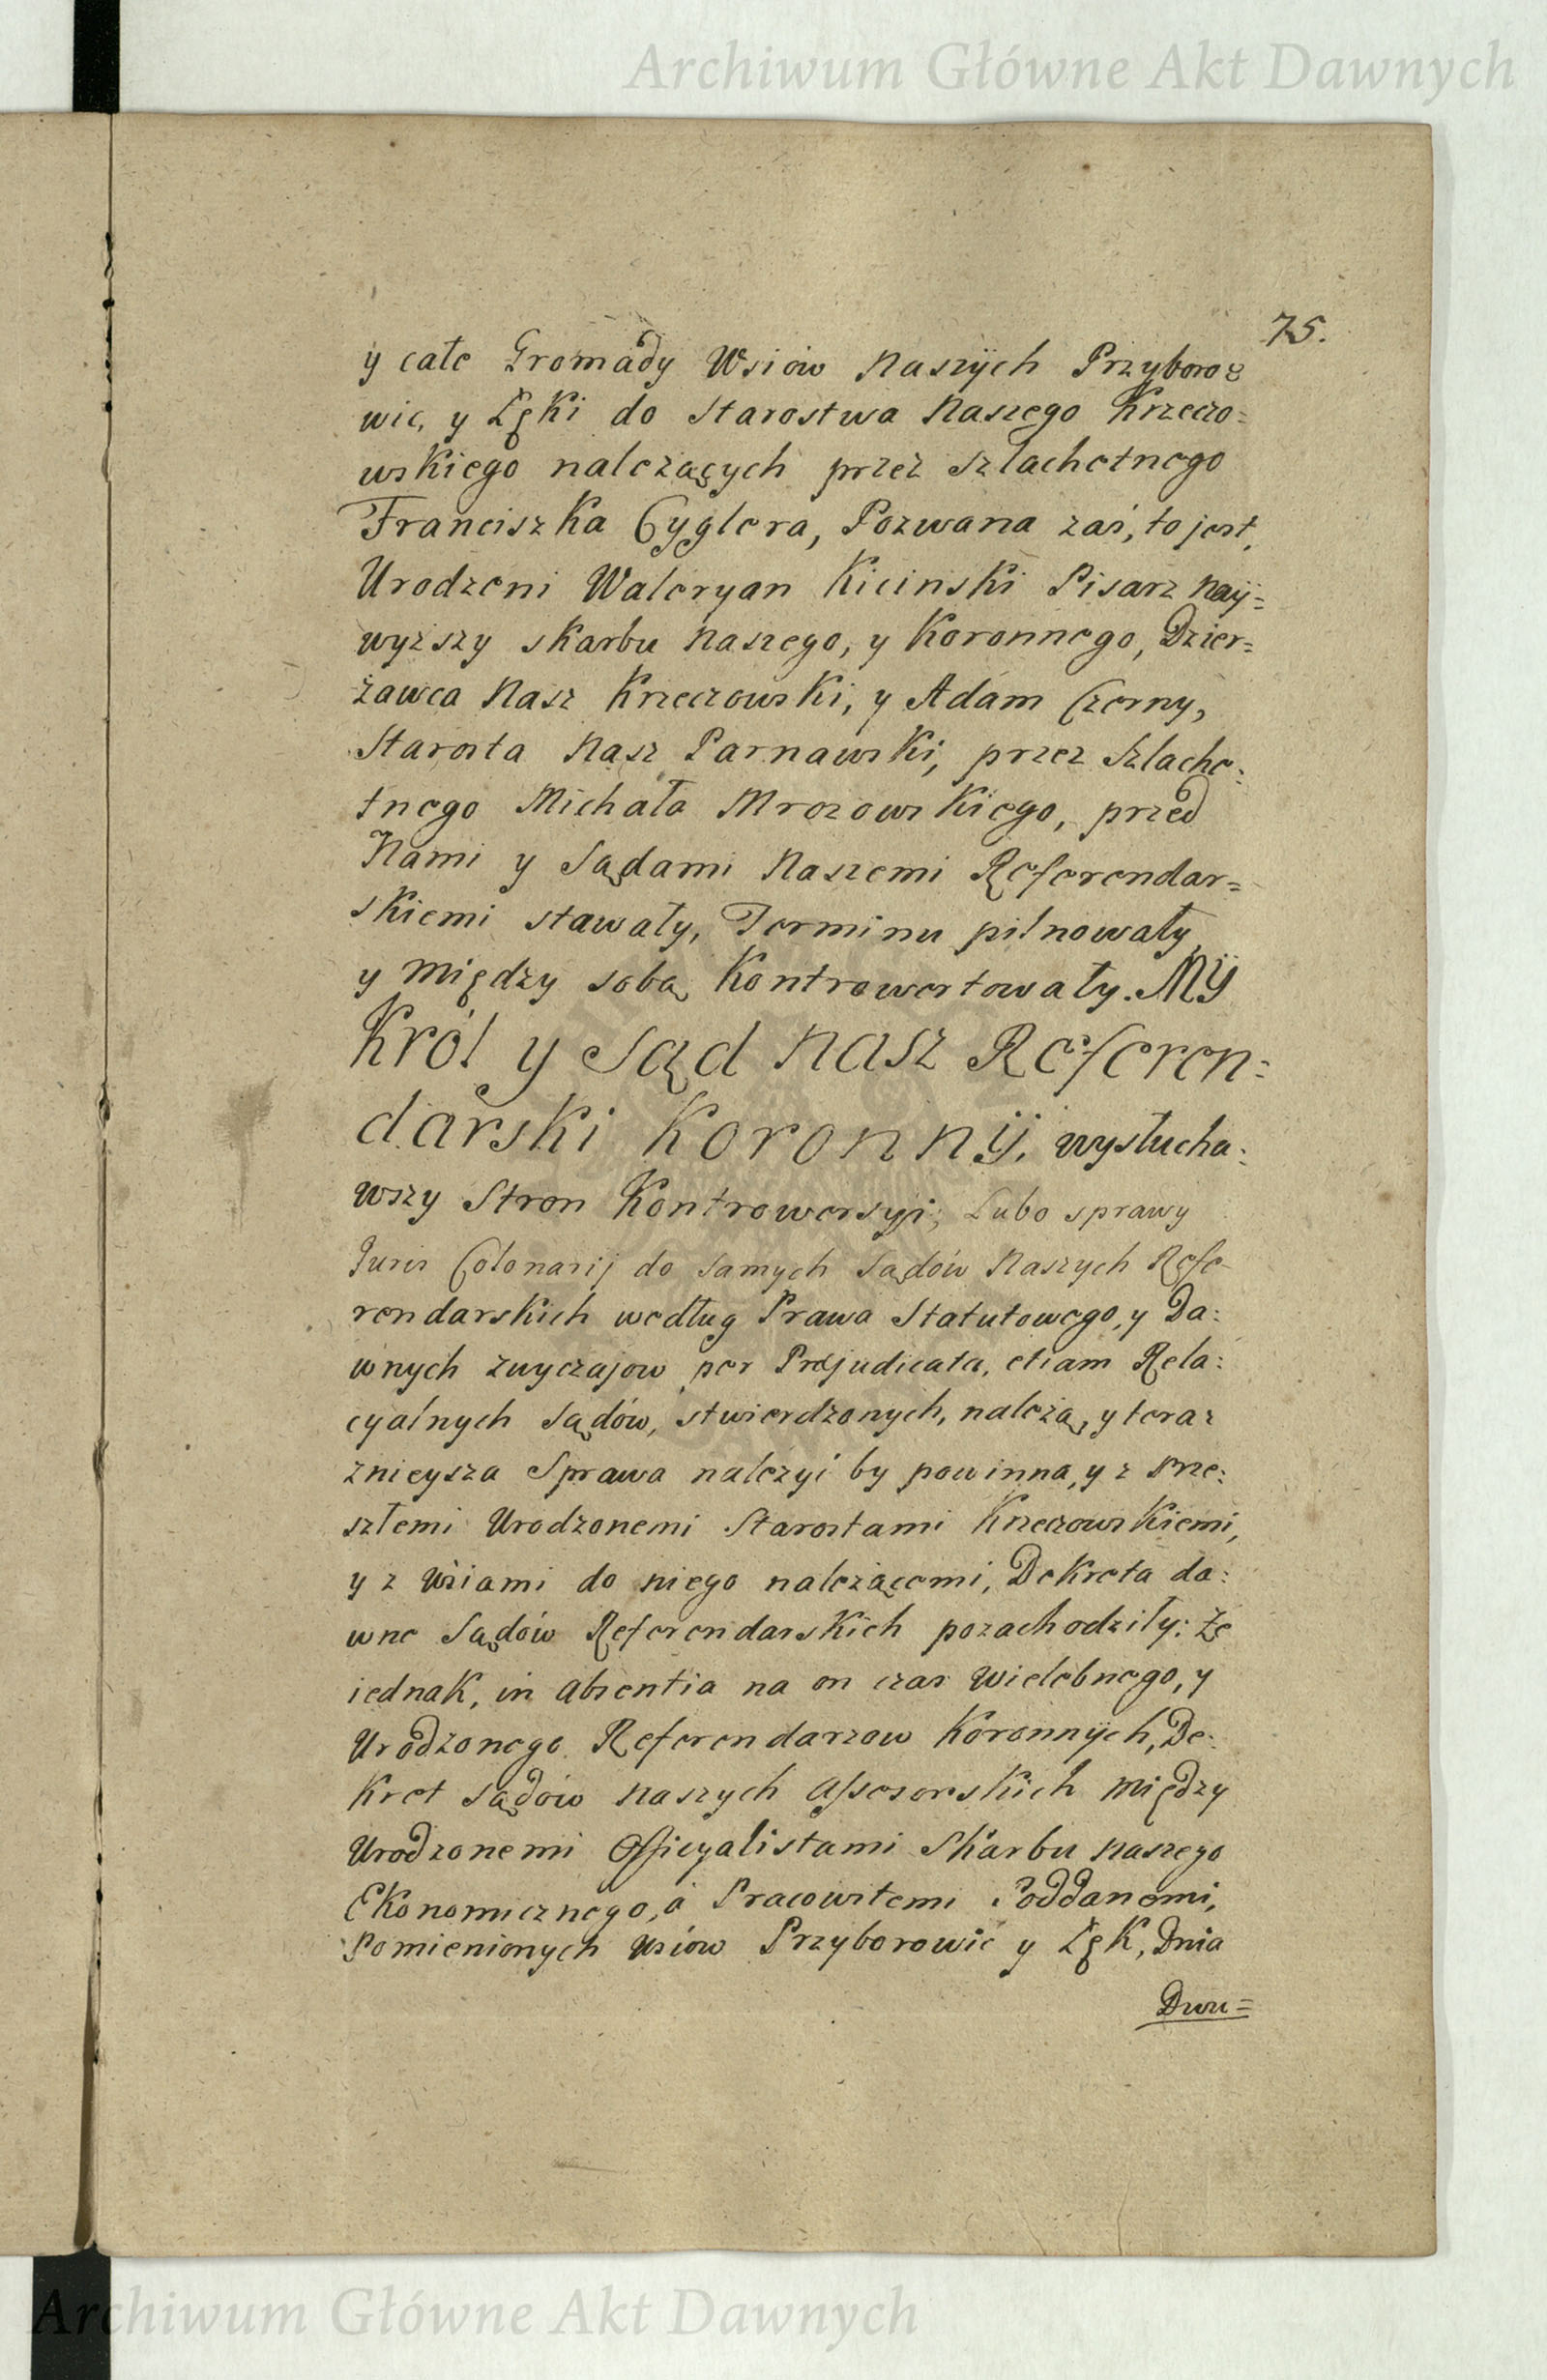 Archiwum Główne Akt Dawnych
75.
y całe Gromady Wsiów Naszych Przyboro=
wic, y Łęki do Starostwa Naszego Krzeczo=
wskiego należących przez Szlachetnego
Franciszka Cyglera, Pozwana zaś, to jest,
Urodzeni Waleryan Kicinski Pisarz Nay=
wyższy skarbu Naszego, y Koronnego, Dzier=
żawca Nasz Krzeczowski, y Adam Czerny,
Starosta Nasz Parnawski, przez Szlache:
tnego Michała Mrozowskiego, przed
Nami y Sądami Naszemi Referendar=
skiemi stawały, Terminu pilnowały
y między sobą Kontrowertowały. MY
Król y Sąd Nasz Referen:
darski Koronny, wysłucha:
wszy Stron Kontrowersyi; Lubo sprawy
Juris Colonarij do samych Sądów Naszych Refe
rendarskich według Prawa Statutowego, y Da:
wnych zwyczajow per Præjudicata, etiam Rela:
cyalnych Sądów, stwierdzonych, należą, y teraz
znieysza Sprawa należyć by powinna, y z Prze:
szłemi Urodzonemi Starostami Krzeczowskiemi,
y z Wsiami do niego należącemi, Dekreta da:
wne Sądów Referendarskich pozachodziły: Że
iednak, in absentia na on czas Wielebnego, y
Urodzonego Referendarzow Koronnych, De:
kret Sądów Naszych Assesorskich między
Urodzonemi Officyalistami Skarbu Naszego
Ekonomicznego, á Pracowitemi Poddanemi,
Pomienionych Wsiow Przyborowic y Łęk, Dnia
Dwu=
Archiwum Główne Akt Dawnych